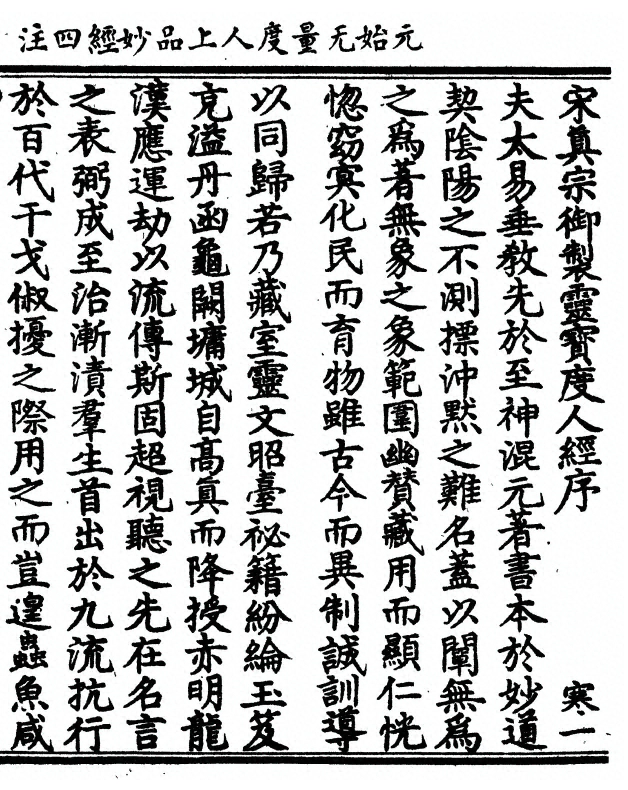 元始无量度人上品妙經四注
宋真宗御製靈寶度人經序 寒一
夫太易垂教先於至神混元著書本於妙道
契陰陽之不測摽沖默之難名蓋以闡無為
之為著無象之象範圍幽贊藏用而顯仁恍
惚窈冥化民而育物雖古今而異制誠訓導
以同歸若乃藏室靈文昭臺祕籍紛綸玉笈
充溢丹函龜闕墉城自高真而降授赤明龍
漢應運劫以流傳斯固超視聽之先在名言
之表弼成至治漸漬羣生首出於九流抗行
於百代干戈俶擾之際用之而豈遑蟲魚咸